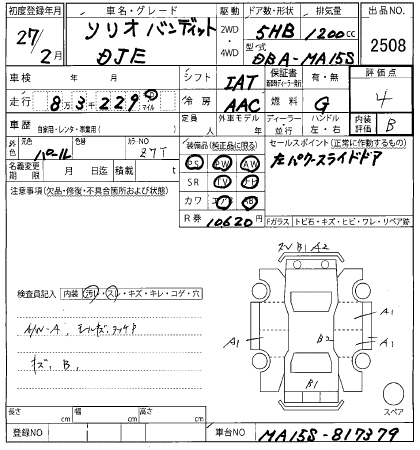 初度登録年月 車名・グレード 駆動 ドア数・形状 排気量 出品NO.
27/2月 ソリオ バンディット 2WD・4WD 5HB 1200cc 2508
DJE 型式 DBA-MA15S
車検 年 月 シフト IAT 保証書 有・無 評価点
走行 8万3千229 km マイル 冷房 AAC 燃料 G 4
車歴 自家用・レンタ・事業用( ) 定員 外車モデル年 ディーラー・並行 ハンドル 左・右 内装評価 B
外色 元色 パール 色替 カラーNO 27T
装備品(純正品に限る) セールスポイント(正常に作動するもの)
PS PW AW 左パワースライドドア
名義変更期限 月 日迄 積載 t SR TV ナビ
注意事項(欠品・修復・不具合箇所および状態) カワ エアB AB
R券 10620円
Fガラス トビ石・キズ・ヒビ・ワレ・リペア跡
B1 A2
検査員記入 内装 汚レ・スレ・キズ・キレ・コゲ・穴
A/W-A
キズ B
A1 B2 A1 A1
B1
スペア
長さ cm 幅 cm 高さ cm
登録NO 車台NO MA15S-817379